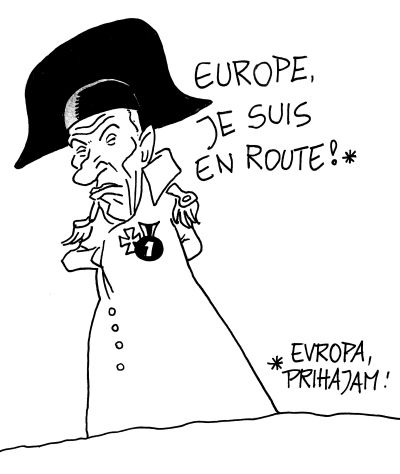 EUROPE,
JE SUIS
EN ROUTE!*
1
* EVROPA,
PRIHAJAM!